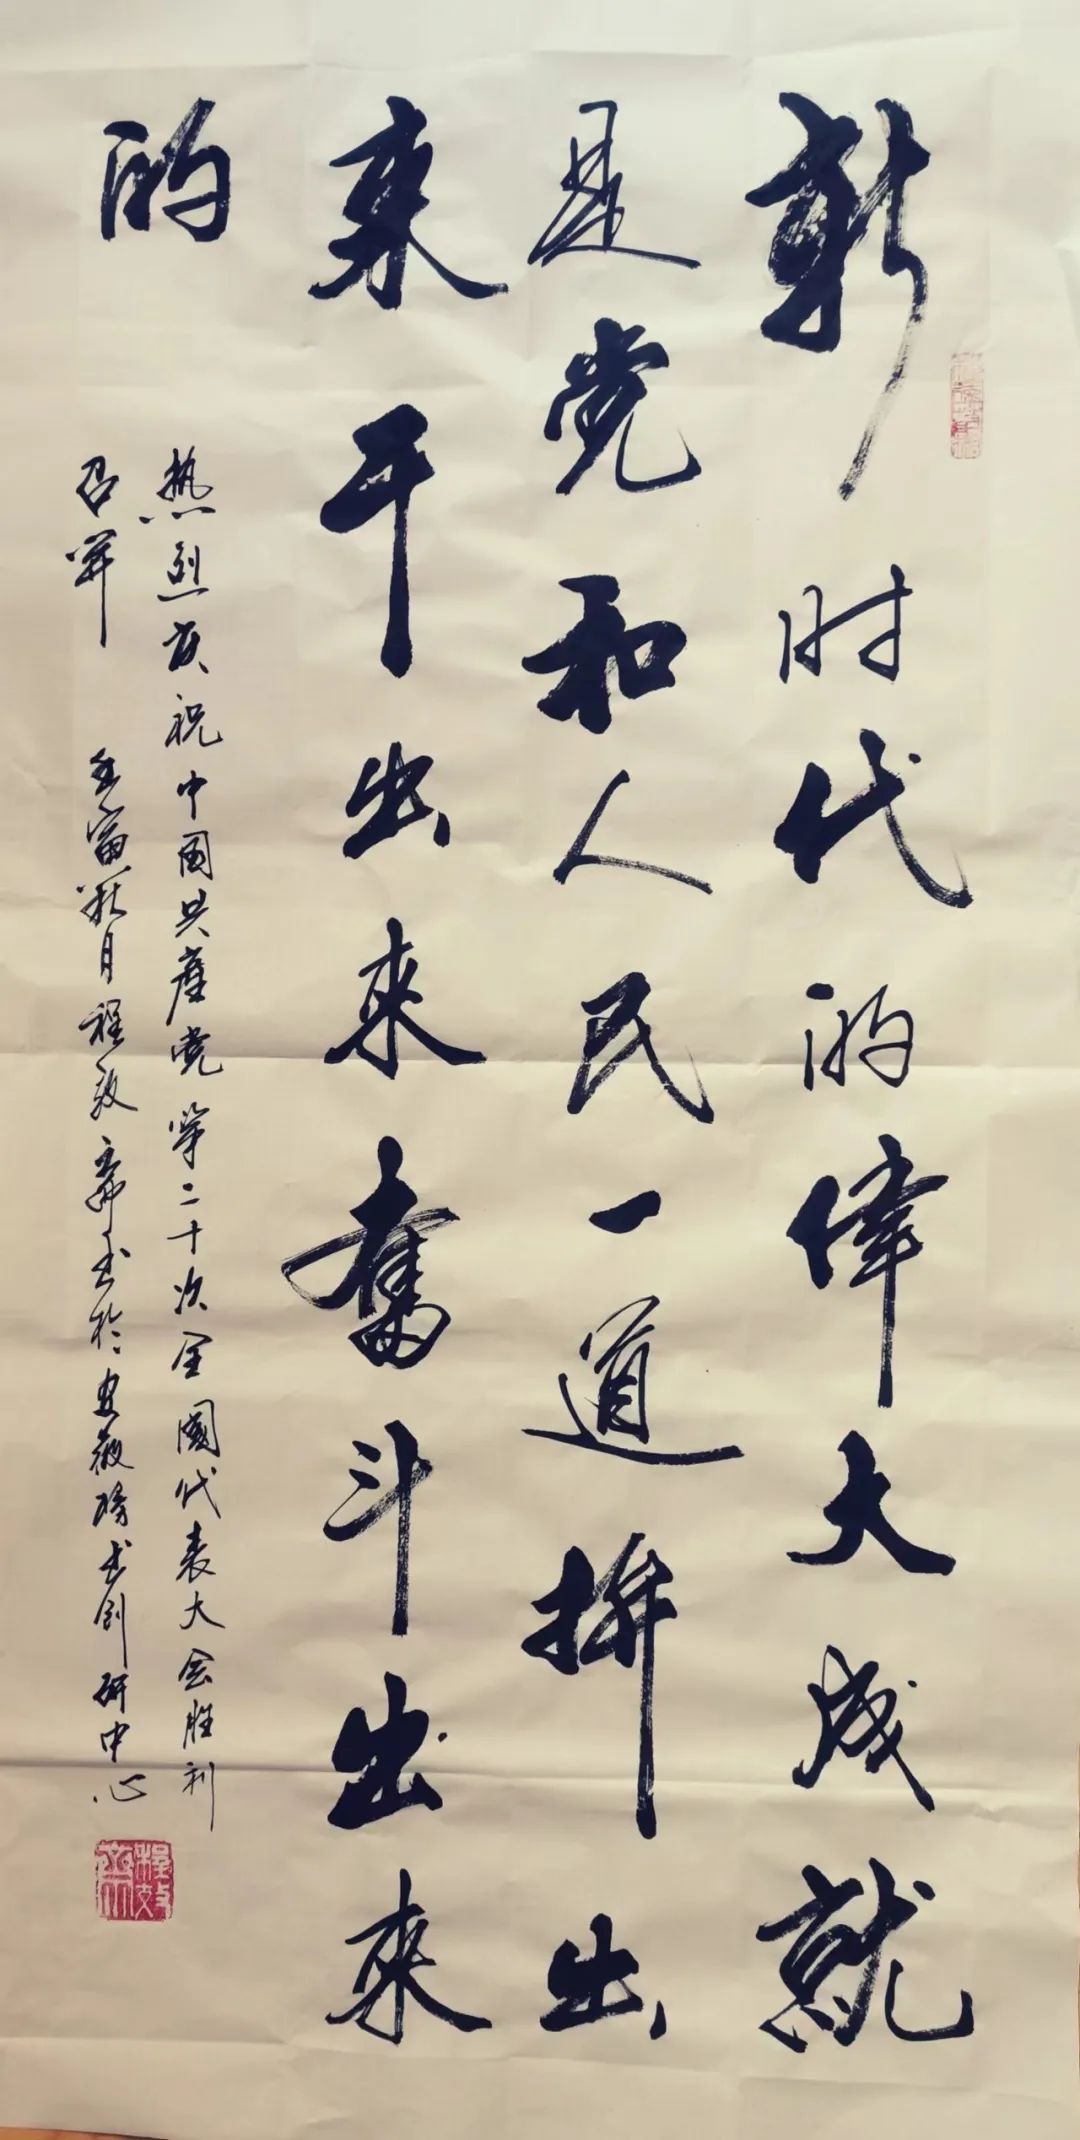 新时代的偉大成就
是党和人民一道拚出
来干出来奮斗出来
的
热烈庆祝中国共產党第二十次全國代表大会胜利
召開 壬寅秋月程效齋书於安徽
创研中心